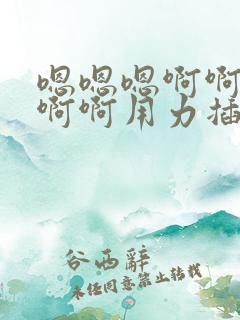 嗯嗯嗯啊啊
啊啊用力插
谷西辭
未经同意禁止转载